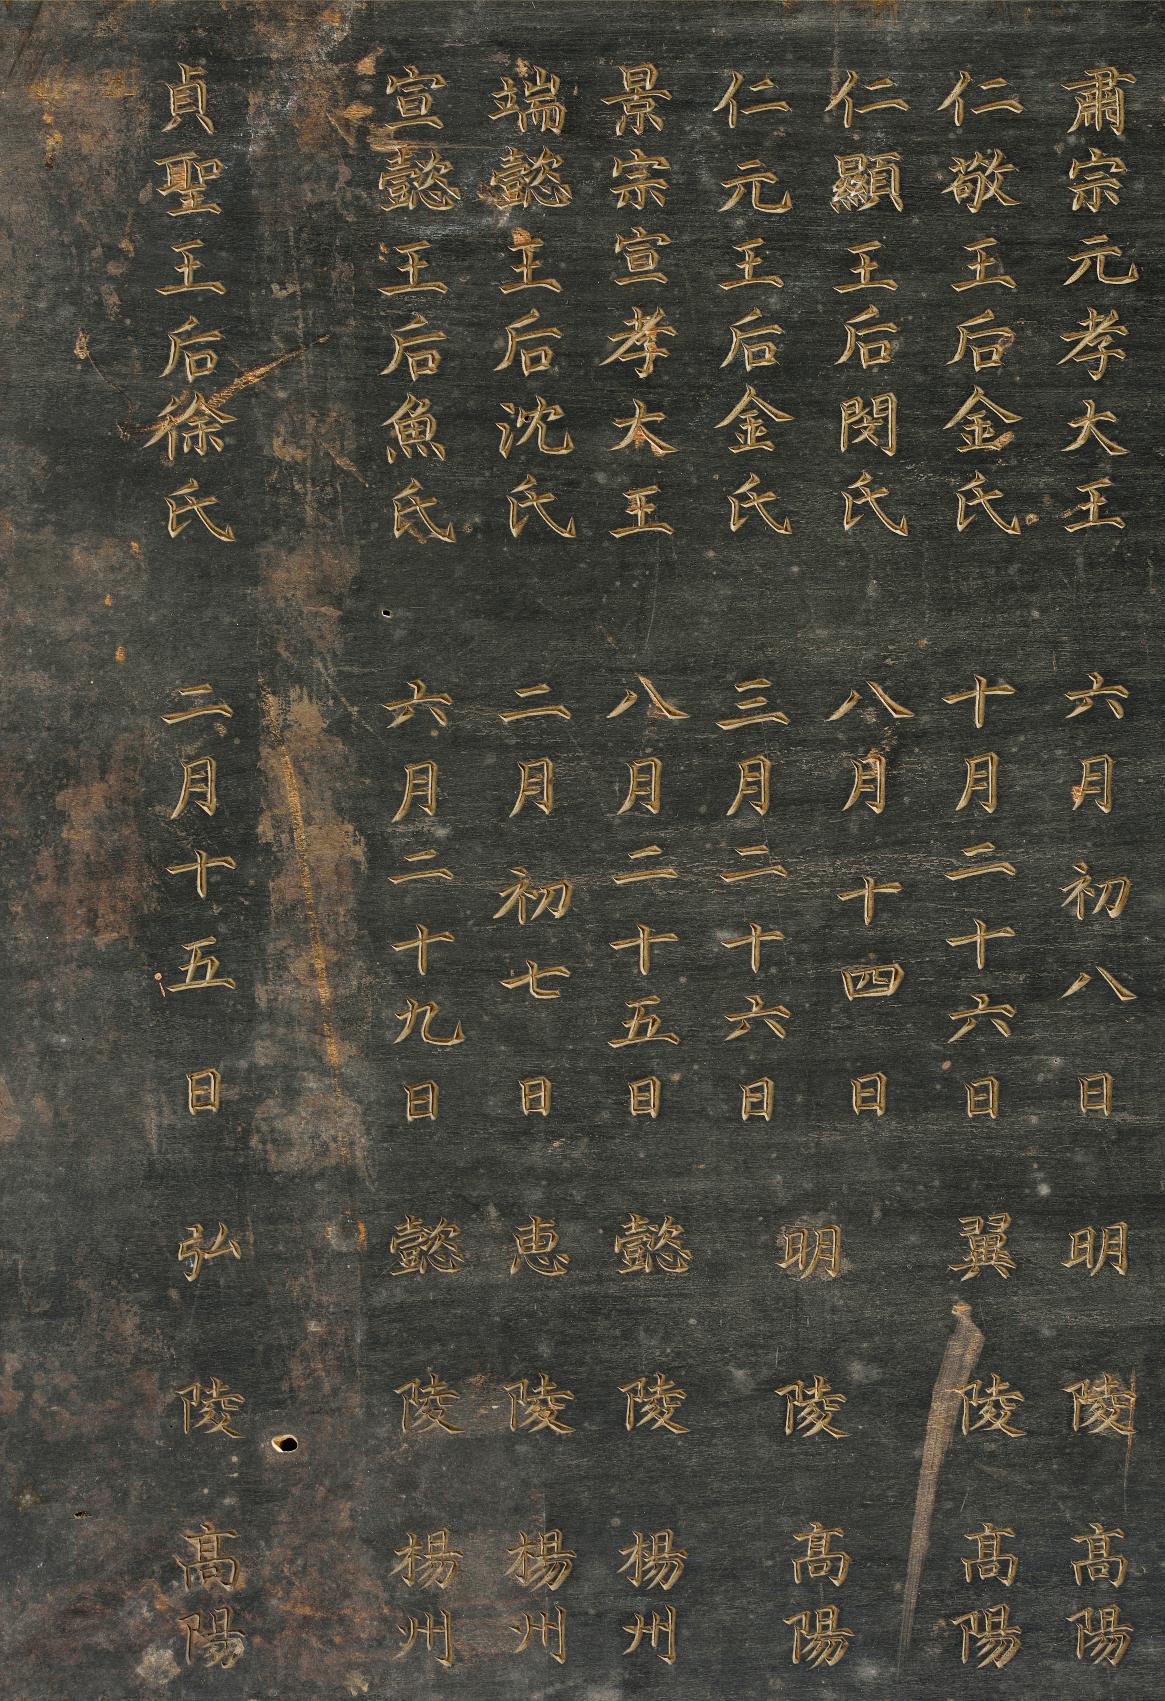 肅宗元孝大王 六月初八日 明陵 高陽
仁敬王后金氏 十月二十六日 翼陵 高陽
仁顯王后閔氏 八月十四日
仁元王后金氏 三月二十六日 明陵 高陽
景宗宣孝大王 八月二十五日 懿陵 楊州
端懿王后沈氏 二月初七日 惠陵 楊州
宣懿王后魚氏 六月二十九日 懿陵 楊州
貞聖王后徐氏 二月十五日 弘陵 高陽